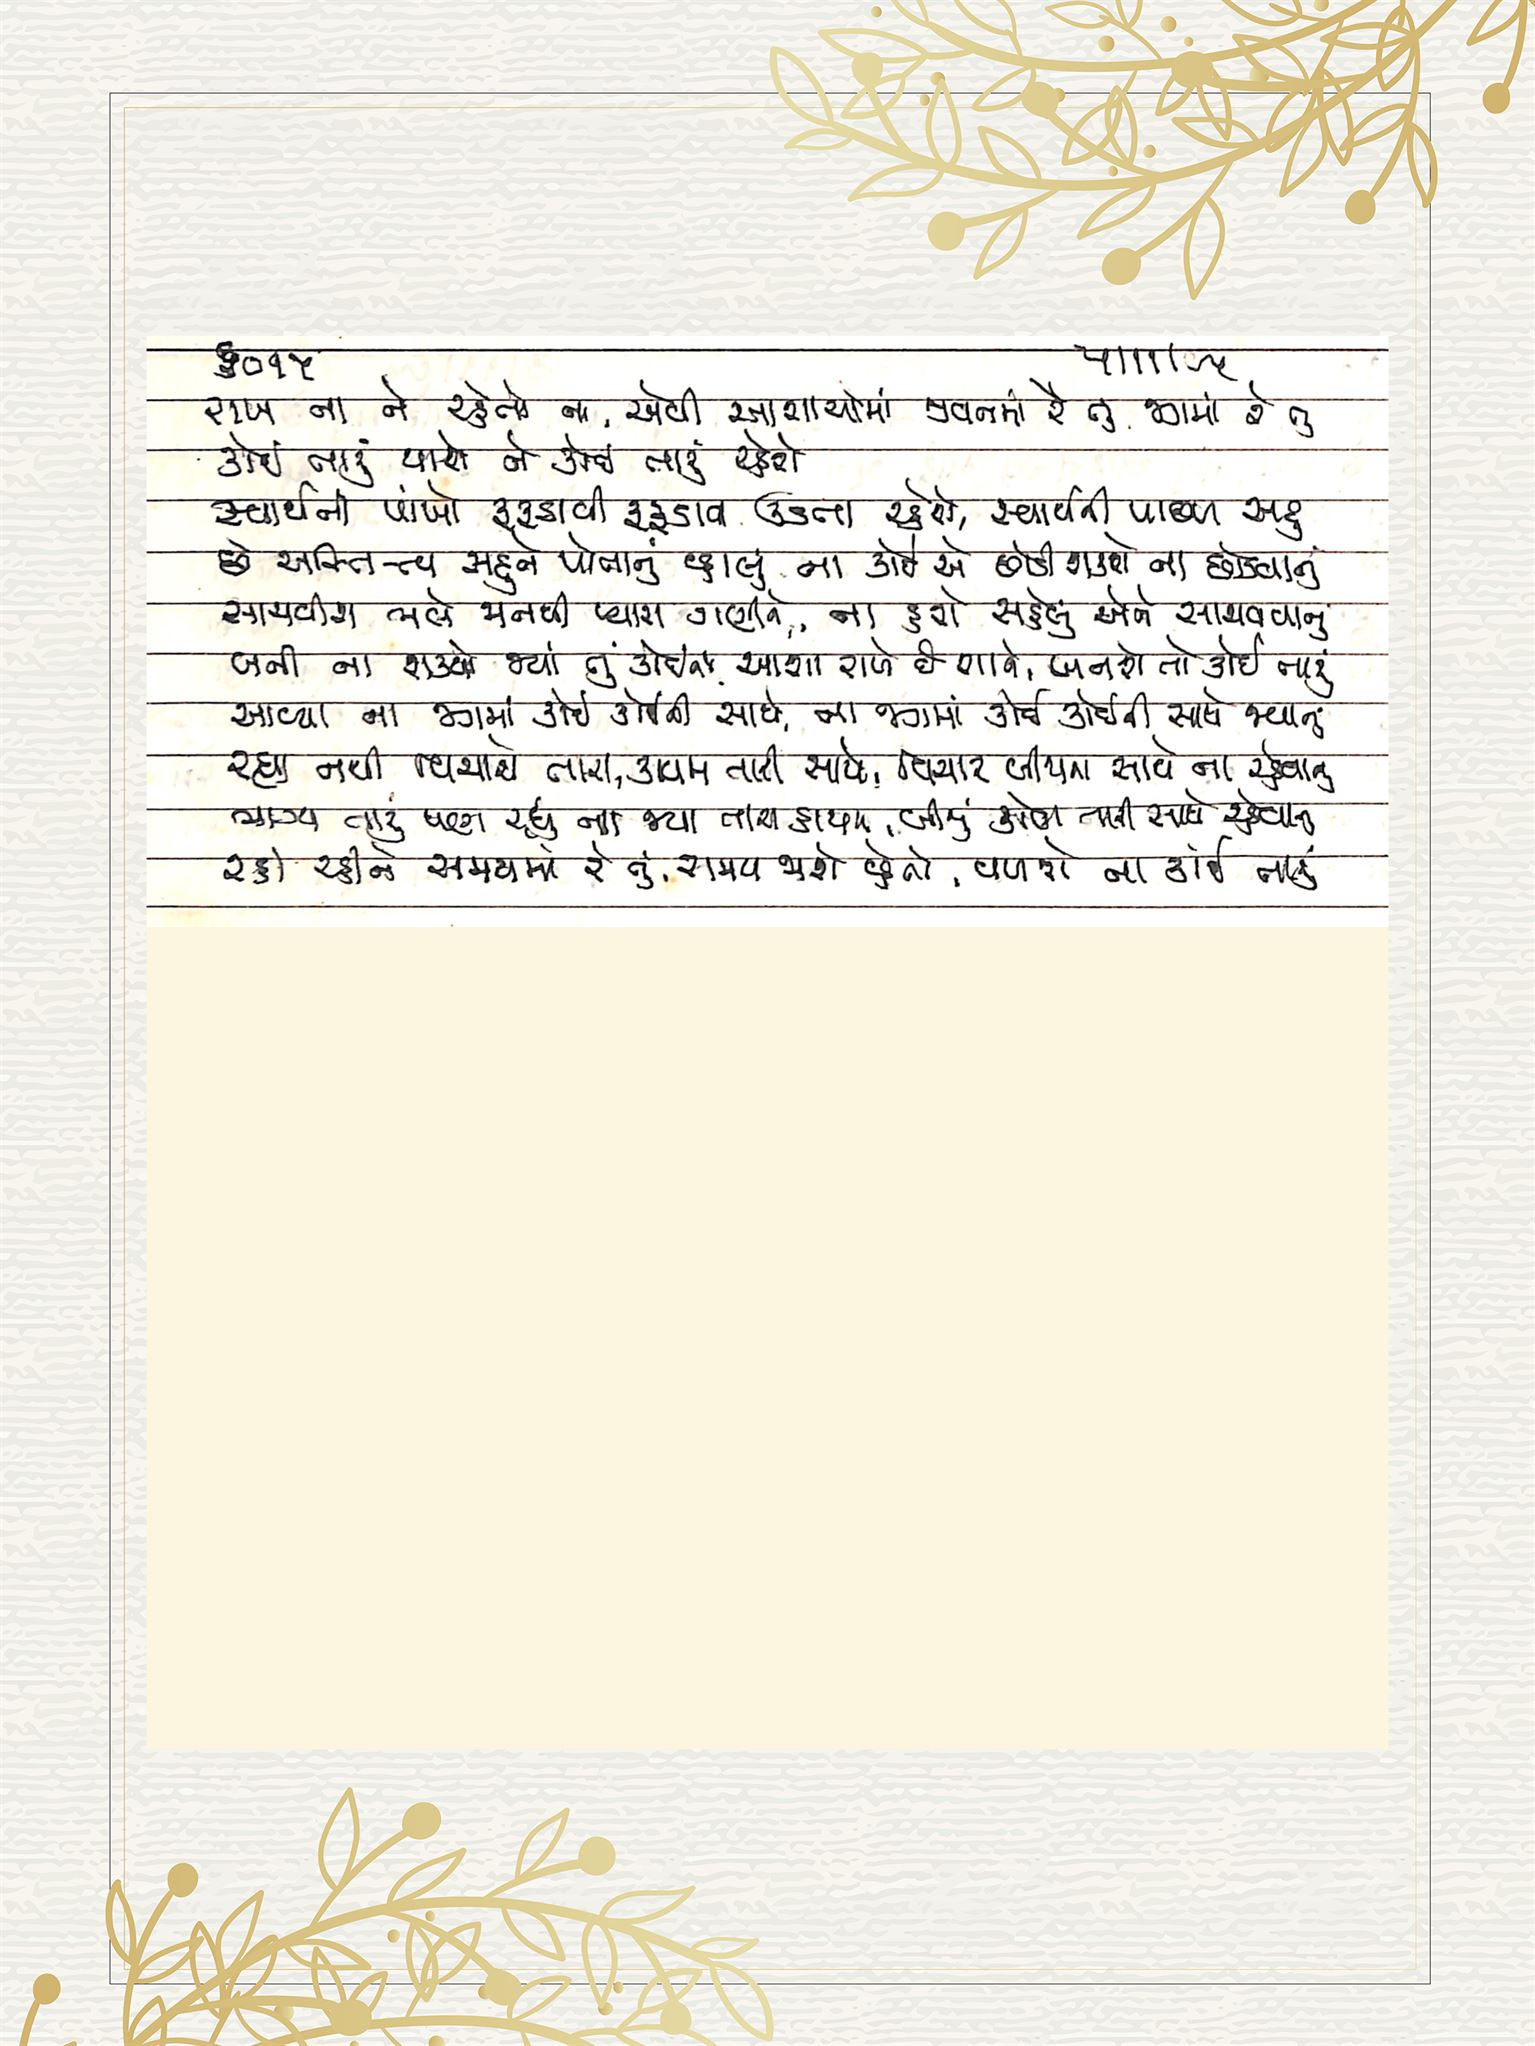 ૬૦૧૫ ૫/૧/૯૫
રાખ ના ને રહેતો ના, એવી આશાઓમાં જીવનમાં રે તું જગમાં રે તું
કોઈ તારું થાશે ને કોઈ તારું રહેશે
સ્વાર્થની પાંખો ફફડાવી ફફડાવી ઉડતા રહેશે, સ્વાર્થની પાછળ સહુ
છે અસ્તિત્વ સહુને પોતાનું વ્હાલું ના કોઈ એ છોડી શકશે ના છોડવાનું
સાચવીશ ભલે મનથી પ્યારા ગણીને, ના હશે સહેલું એને સાચવવાનું
બની ના શક્યો જ્યાં તું કોઈનો આશા રાખે છે શાને, બનશે તો કોઈ તારું
આવ્યા ના જગમાં કોઈ કોઈની સાથે, ના જગમાં કોઈ કોઈની સાથે જવાનું
રહ્યા નથી વિચારો તારા, કાયમ તારી સાથે, વિચાર બીજાના સાથે ના રહેવાનું
ભાગ્ય તારું પણ રહ્યું ના જ્યાં તારા કાયમ, બીજું કોણ તારી સાથે રહેવાનું
રહી રહીને સમયમાં રે તું, સમય જાશે વીતતો, વળશે ના કાંઈ તારું